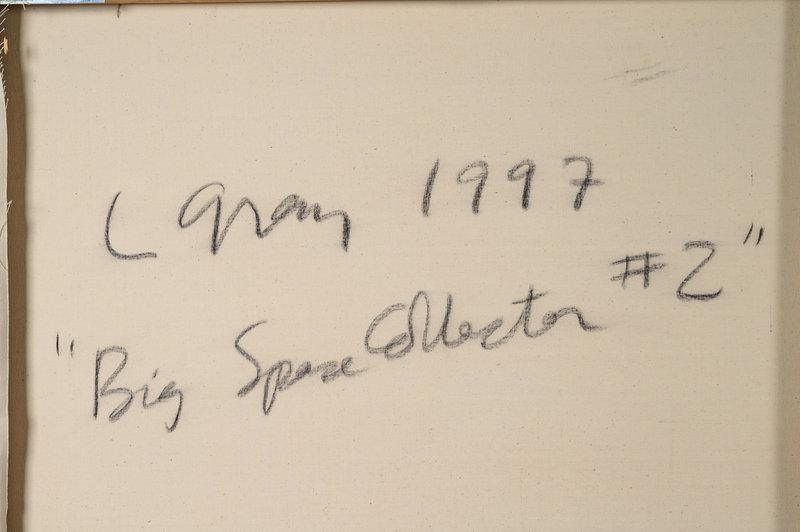 L Gray 1997
"Big Space Collector #2"